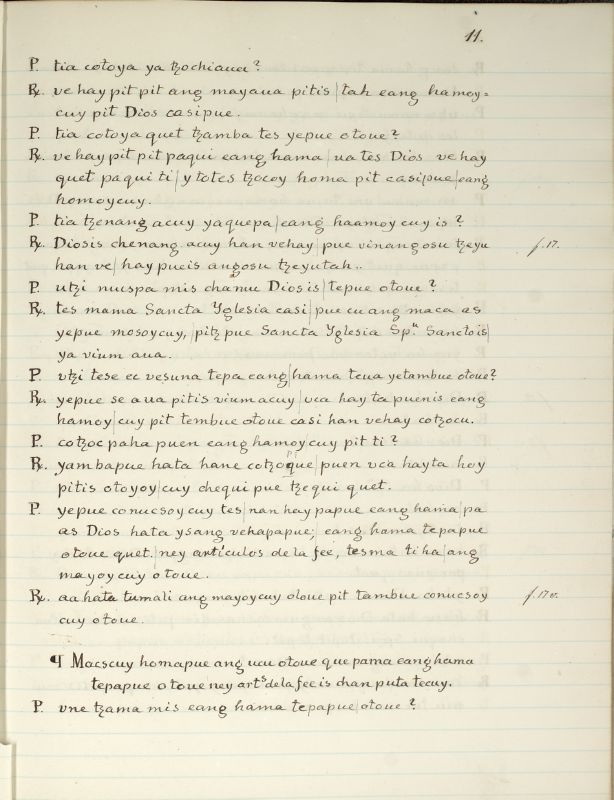 11.
P. tia cotoya ya tzochiauei?
R. ve hay pit pit ang mayaua pitis | tah eang hamoy=
cuy pit Dios casipue.
P. tia cotoya quet tzamba tes yepue otoue?
R. ve hay pit pit paqui eang hama | ua tes Dios ve hay
quet paqui ti | y totes tzocoy homa pit casipue | eang
homoycuy.
P. tia tzenang acuy yaquepa | eang haamoy cuy is?
R. Diosis chenang acuy han vehay | pue vinang osu tzeyu f. 17.
han ve | hay pueis angosu tzeyutah..
P. utzi nuispa mis chamu Diosis | tepue otoue?
R. tes mama Sancta Yglesia casi | pue cu ang maca as
yepue mosoycuy, | pitz pue Sancta Yglesia Spu Sancto is |
ya vium aua.
P. vtzi tese ec vesuna tepa eang | hama tcua yetambue otoue?
R. yepue se aua pitis vium acuy | vca hay ta puenis eang
hamoy | cuy pit tembue otoue casi han vehay cotzocu.
P. cotzoc paha puen eang hamoy | cuy pit ti?
R. yambapue hata hane cotzoque | puen vca hayta hoy
pitis otoyoy | cuy chequi pue tzequi quet.
P. yepue conucsoy cuy tes | nan hay papue eang hama | pa
as Dios hata ysang vehapapue; eang hama tepapue
otoue quet. | ney artículos de la fee, tesma ti ha | ang
mayoy cuy otoue.
R. aa hata tumali ang mayoycuy otoue pit tambue conucsoy f. 17 v.
cuy otoue.
¶ Macscuy homapue ang ucu otoue que pama eang hama
tepapue otoue ney arts de la fee is chan puta tecuy.
P. vne tzama mis eang hama tepapue | otoue?